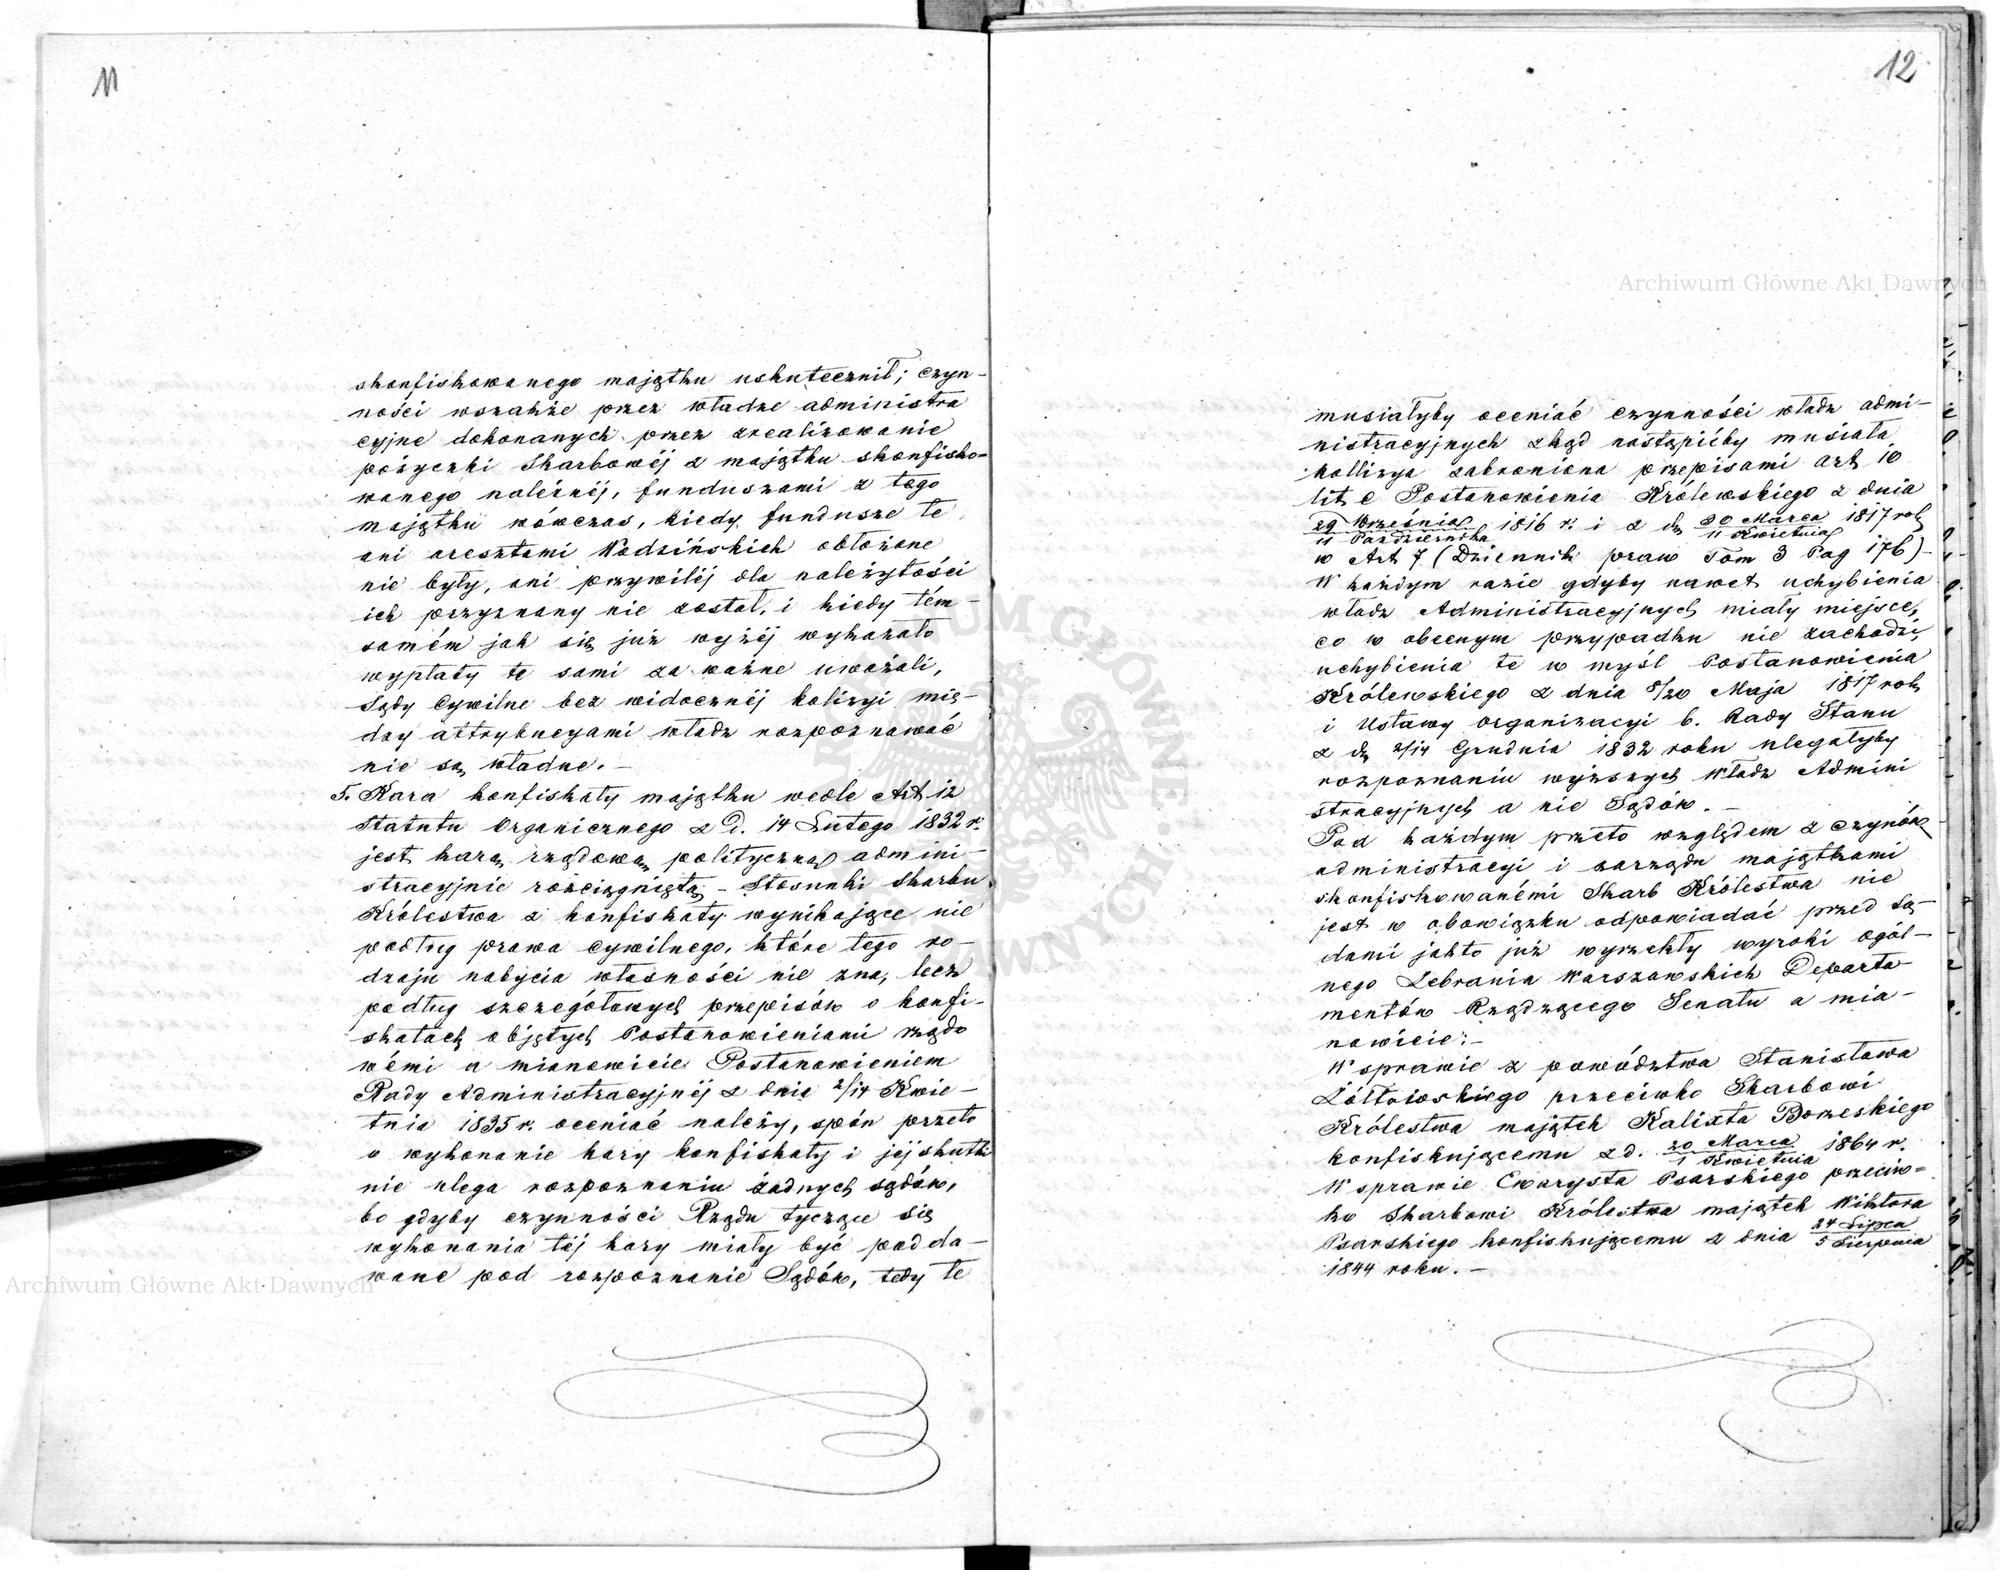 11
skonfiskowanego majątku uskutecznił; czyn-
ności wszakże przez władze administra
cyjne dokonanych przez zrealizowanie
pożyczki Skarbowéj z majątku skonfisko-
wanego należnéj, funduszami z tego
majątku wówczas, kiedy fundusze te
ani aresztami Wodzińskich obłożone
nie były, ani przywiléj dla należytości
ich przyznany nie został, i kiedy tém-
samém jak się już wyżéj wykazało
wypłaty te sami za ważne uważali,
Sądy Cywilne bez widocznéj kolizyi mię-
dzy attrybucyami władz rozpoznawać
nie są władne. —
5. Kara konfiskaty majątku wedle Art 12
Statutu Organicznego z D. 14 Lutego 1832 r.
jest karą rządową, polityczną admini-
stracyjnie rozciągniętą — Stosunki Skarbu
Królestwa z konfiskaty wynikające nie
podług prawa cywilnego, które tego ro-
dzaju nabycia własności nie zna, lecz
podług szczegółowych przepisów o konfi-
skatach objętych Postanowieniami rządo
wémi a mianowicie Postanowieniem
Rady Administracyjnéj z dnia 2/14 Kwie-
tnia 1835 r. oceniać należy, spór przeto
o wykonanie kary konfiskaty i jéj skutki
nie ulega rozpoznaniu żadnych sądów,
bo gdyby czynności Rządu tyczące się
wykonania téj kary miały być podda-
wane pod rozpoznanie Sądów, tedy te
12
musiałyby oceniać czynności władz admi-
nistracyjnych zkąd nastąpićby musiała
kollizya zabroniona przepisami art 10
lit c Postanowienia Królewskiego z dnia
29 Września/11 Października 1816 r. i z d. 30 Marca/11 Kwietnia 1817 rok
w Art 7 (Dziennik praw Tom 3 Pag 176) —
W każdym razie gdyby nawet uchybienia
władz Administracyjnych miały miejsce,
co w obecnym przypadku nie zachodzi,
uchybienia te w myśl Postanowienia
Królewskiego z dnia 8/20 Maja 1817 rok
i Ustawy organizacyi b. Rady Stanu
z d. 2/14 Grudnia 1832 roku ulegałyby
rozpoznaniu wyższych Władz Admini
stracyjnych a nie Sądów. —
Pod każdym przeto względem z czynów
administracyi i zarządu majątkami
skonfiskowanémi Skarb Królestwa nie
jest w obowiązku odpowiadać przed Są-
dami jakto już wyrzekły wyroki ogól-
nego Zebrania Warszawskich Departa
mentów Rządzącego Senatu a mia-
nowicie: —
W sprawie z powództwa Stanisława
Żółtowskiego przeciwko Skarbowi
Królestwa majątek Kalixta Borzeskiego
konfiskującemu z d. 20 Marca/1 Kwietnia 1864 r.
W sprawie Ewarysta Psarskiego przeciw-
ko Skarbowi Królestwa majątek Wiktora
Psarskiego konfiskującemu z dnia 24 Lipca/5 Sierpnia
1844 roku. —
Archiwum Główne Akt Dawnych
Archiwum Główne Akt Dawnych